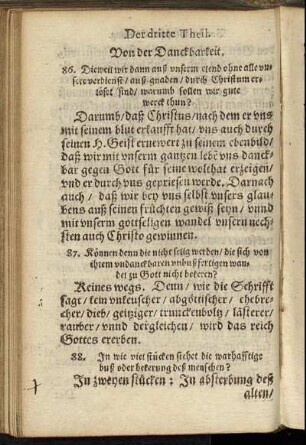 Der dritte Theil.
Von der Danckbarkeit.
86. Dieweil wir dann auß vnserm elend ohne alle vn-
sere verdienst/ auß gnaden/ durch Christum er-
löset sind/ warumb sollen wir gute
werck thun?
Darumb/ daß Christus/ nach dem er vns
mit seinem blut erkaufft hat/ vns auch durch
seinen H. Geist ernewert zu seinem ebenbild/
daß wir mit vnserm gantzen lebē vns danck-
bar gegen Gott für seine wolthat erzeigen/
vnd er durch vns gepriesen werde. Darnach
auch/ daß wir bey vns selbst vnsers glau-
bens auß seinen früchten gewiß seyn/ vnnd
mit vnserm gottseligen wandel vnsern nech-
sten auch Christo gewinnen.
87. Können denn die nicht selig werden/ die sich von
ihrem vndanckbaren vnbußfertigen wan-
del zu Gott nicht bekeren?
Keines wegs. Denn/ wie die Schrifft
sagt/ kein vnkeuscher/ abgöttischer/ ehebre-
cher/ dieb/ geiziger/ trunckenboltz/ lästerer/
rauber/ vnnd dergleichen/ wird das reich
Gottes ererben.
88. In wie viel stücken stehet die warhafftige
buß oder bekerung deß menschen?
In zweyen stücken: In absterbung deß
alten/